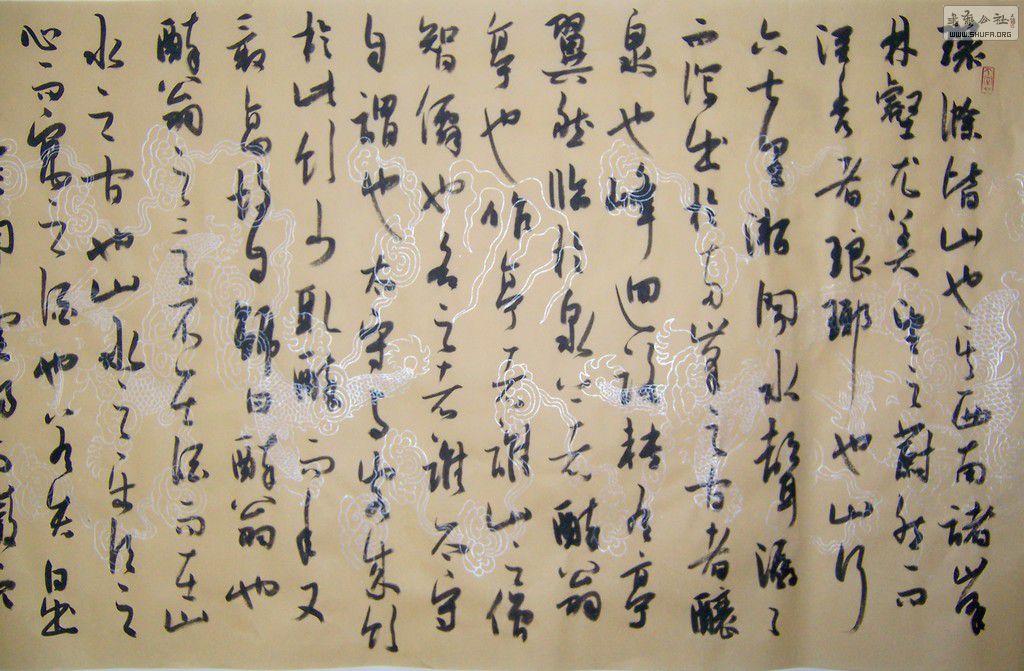 書法公社
WWW.SHUFA.ORG
環滁皆山也其西南諸峯
林壑尤美望之蔚然而
深秀者琅琊也山行
六七里漸聞水聲潺々
而瀉出於兩峯之間者釀
泉也峰迴路轉有亭
翼然臨於泉上者醉翁
亭也作亭者誰山之僧
智僊也名之者誰太守
自謂也太守與客來飲
於此飲少輒醉而年又
最高故自號曰醉翁也
醉翁之意不在酒而在山
水之間也山水之樂得之
心而寓之酒也若夫日出